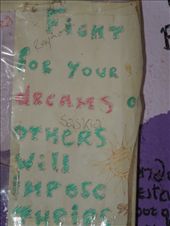 FIGHT
FOR YOUR
DREAMS O
Saskia
OTHERS
WILL
IMPOSE
THEIRS